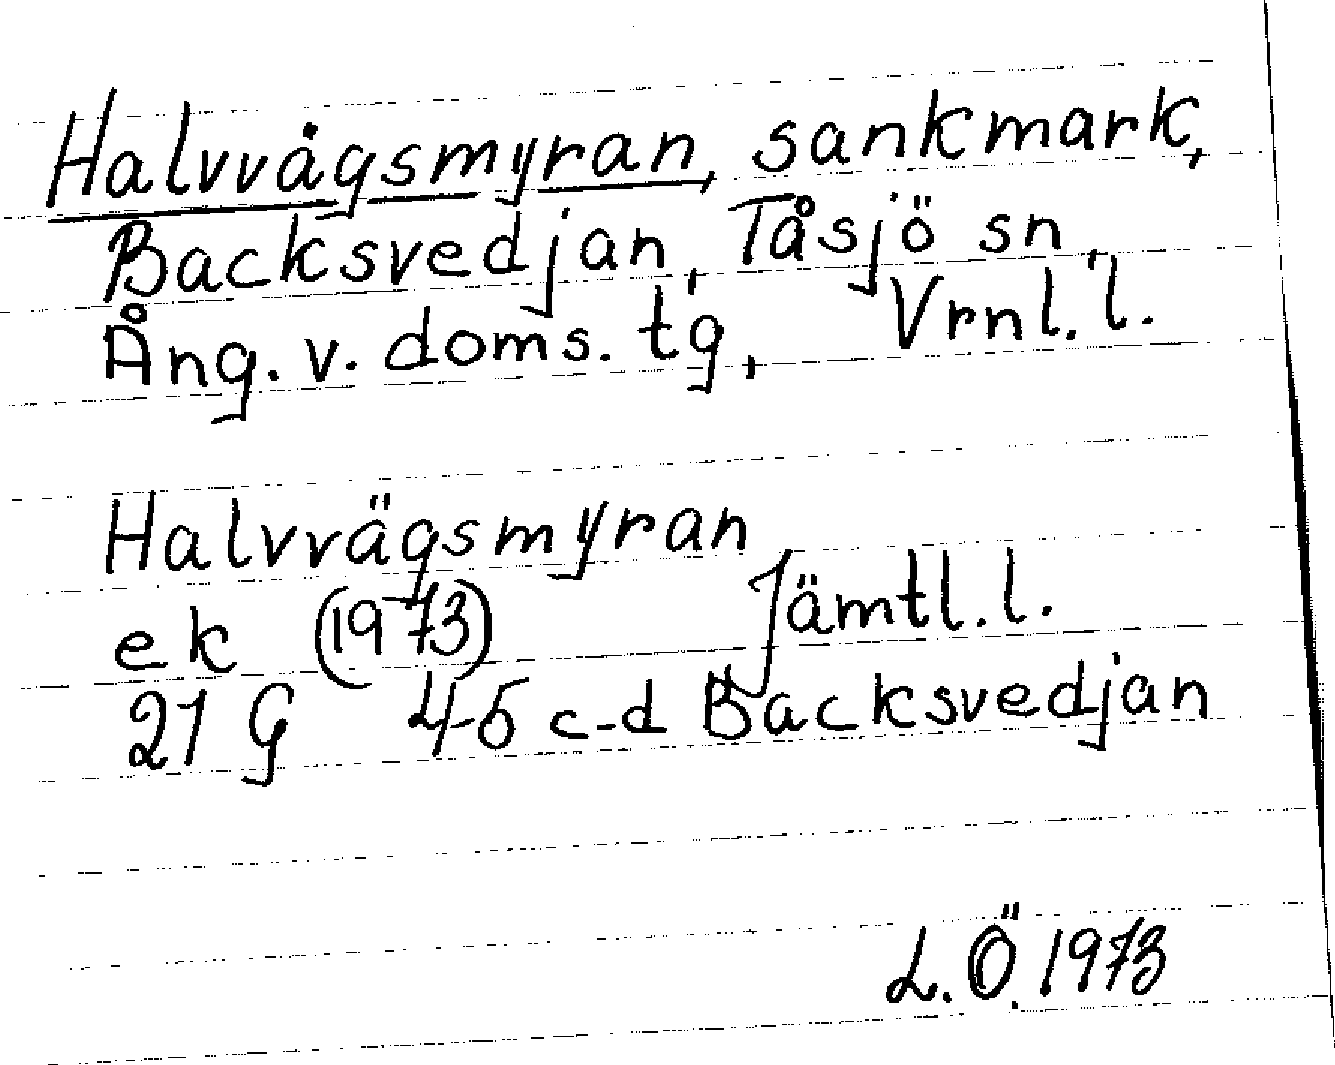 Halvvågsmyran, sankmark,
Backsvedjan, Tåsjö sn,
Ång. v. doms. tg, Vrnl. l.
Halvvägsmyran
ek (1973) Jämtl. l.
21 G 4-5 c-d Backsvedjan
L. Ö. 1973